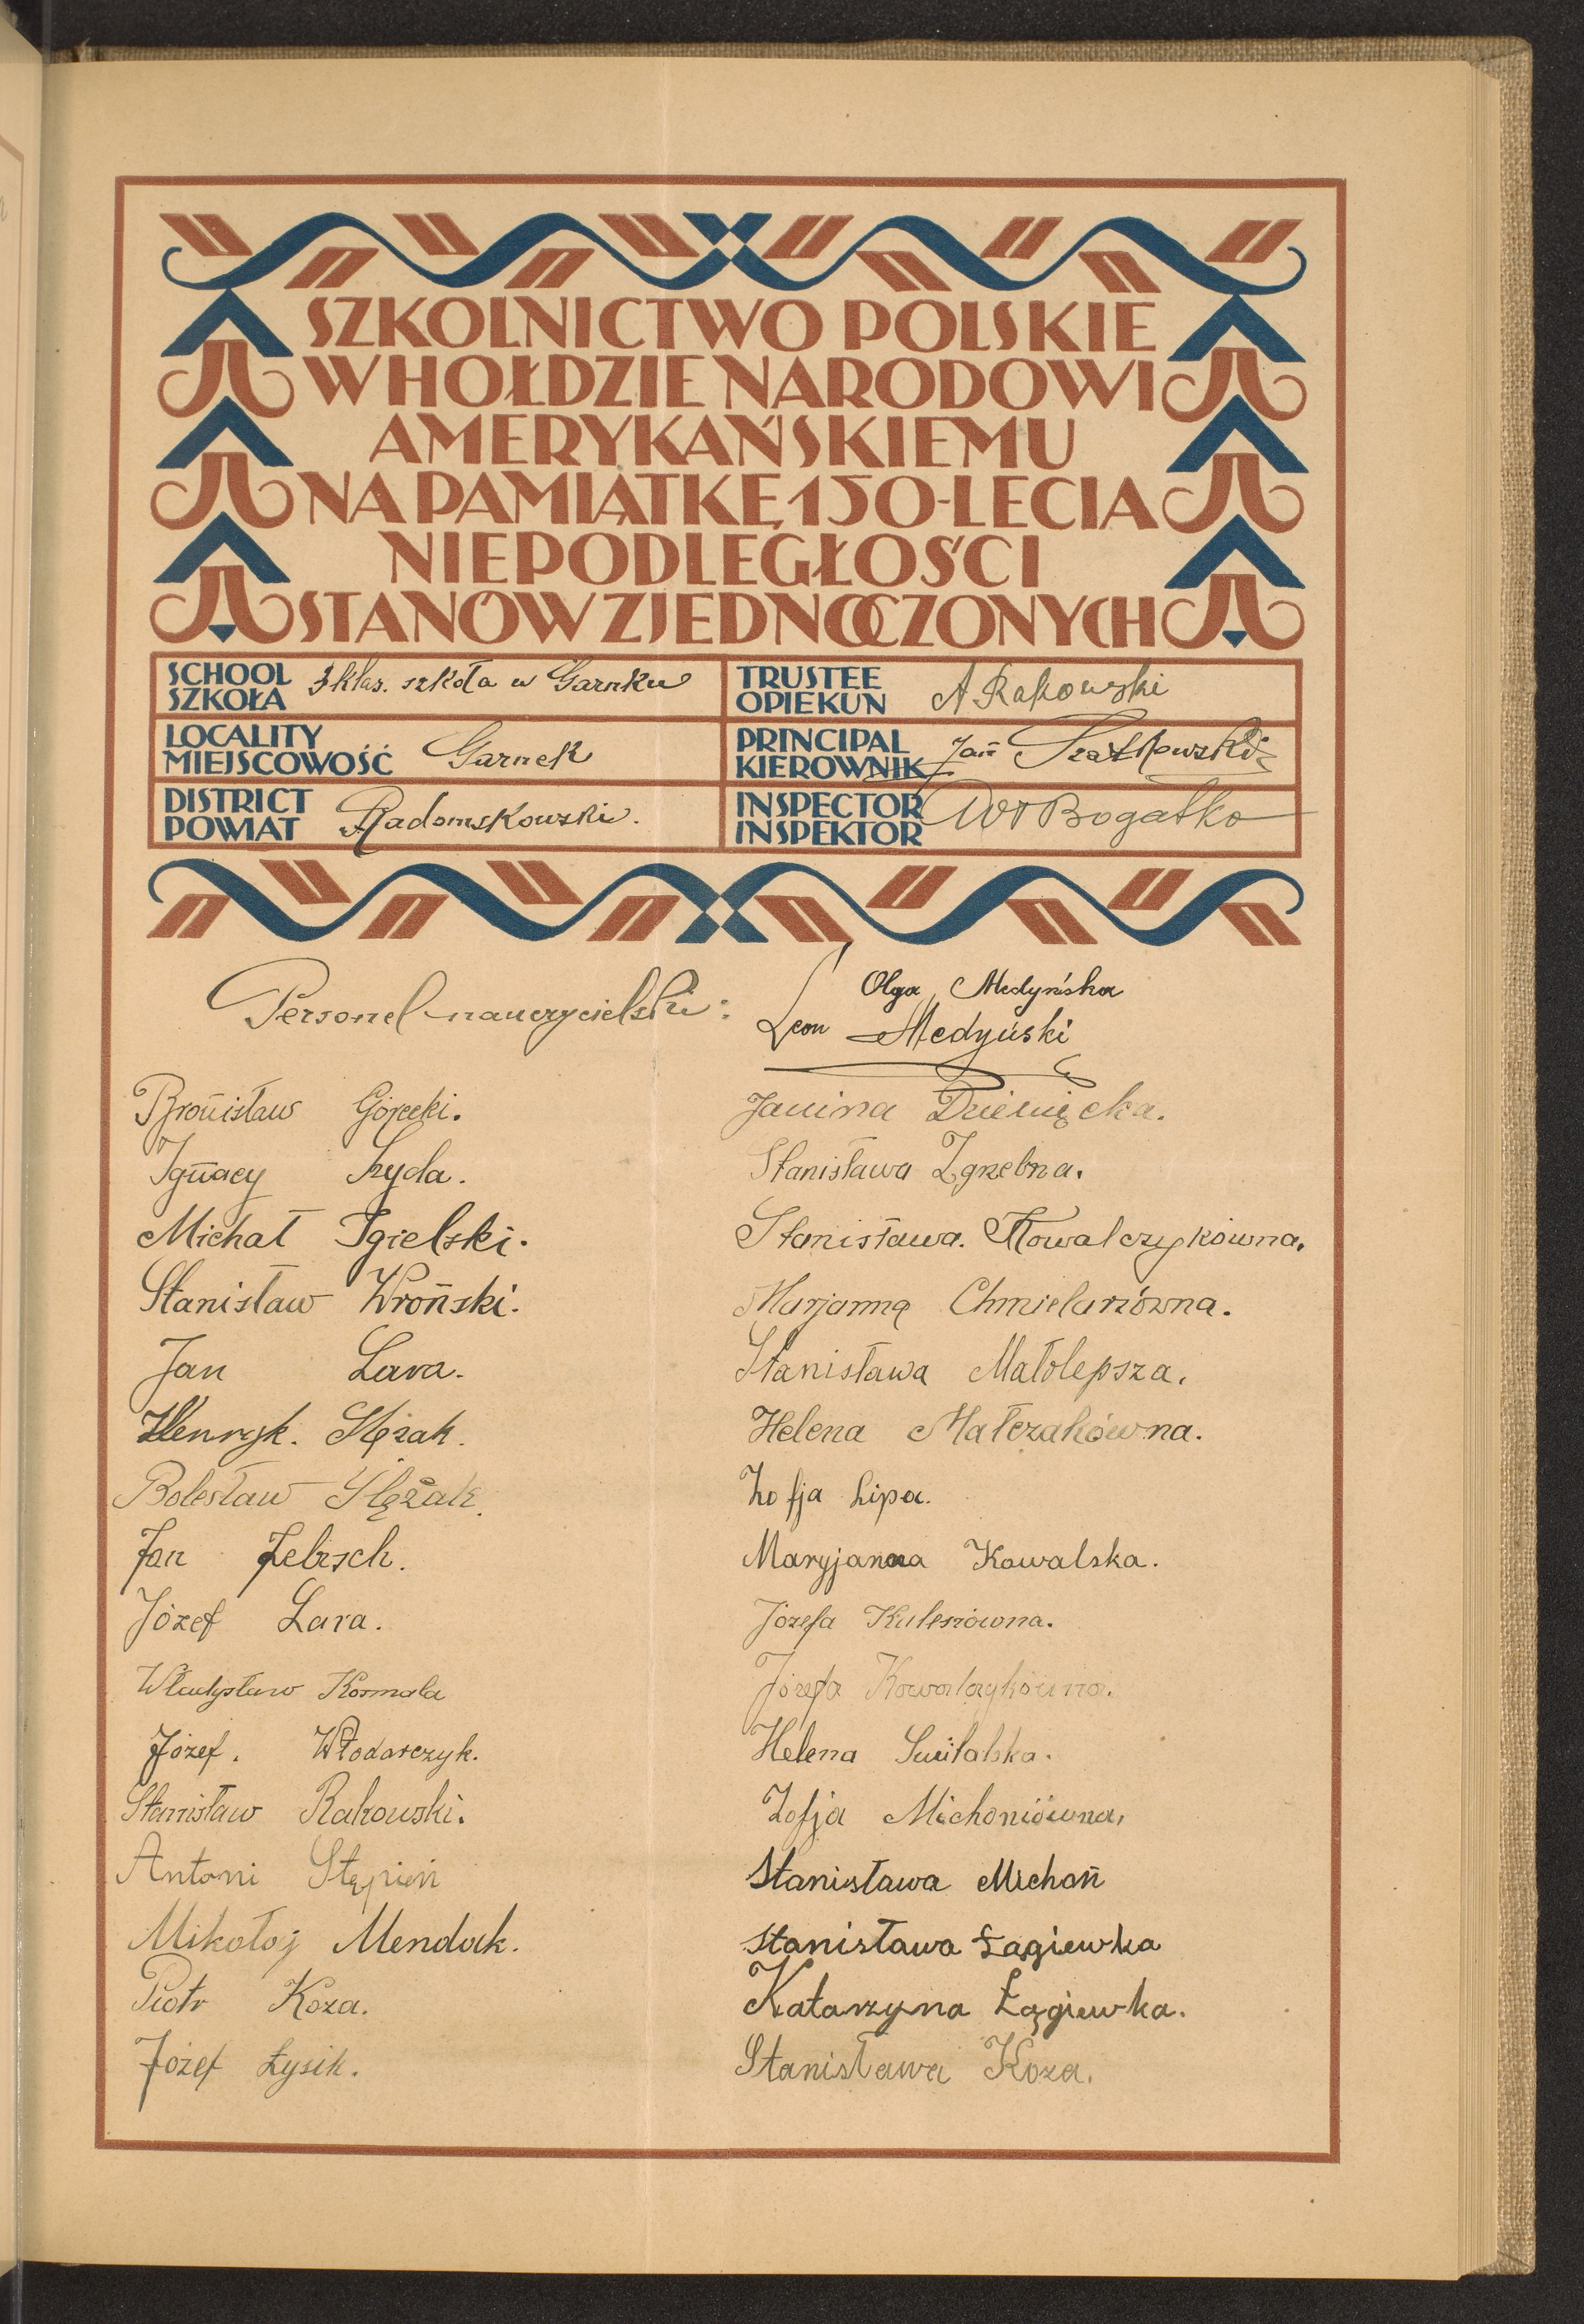 SZKOLNICTWO POLSKIE
W HOŁDZIE NARODOWI
AMERYKAŃSKIEMU
NA PAMIĄTKĘ 150-LECIA
NIEPODLEGŁOŚCI
STANÓW ZJEDNOCZONYCH
SCHOOL
SZKOŁA
3 klas. szkoła w Garnku
TRUSTEE
OPIEKUN
A Rakowski
LOCALITY
MIEJSCOWOŚĆ
Garnek
PRINCIPAL
KIEROWNIK
Jan
DISTRICT
POWIAT
Radomskowski.
INSPECTOR
INSPEKTOR
Bogatko
Personel nauczycielski:
Olga Medyńska
Leon Medyński
Bronisław Górecki.
Ignacy
Michał Igielski.
Stanisław Wroński.
Jan Lara.
Henryk. Ślęzak.
Bolesław Ślęzak.
Jan
Józef Lara.
Władysław Kosmala
Józef. Włodarczyk.
Stanisław Rakowski.
Antoni Stępień
Mikołaj Mendak.
Piotr Koza.
Józef Łysik.
Janina
Stanisława Zgrzebna.
Stanisława. Kowalczykówna.
Marjanna Chmielarzówna.
Stanisława Małolepsza.
Helena Małczakówna.
Zofja Lipa.
Maryjanna Kowalska.
Józefa Kuleszówna.
Józefa Kowalczykówna.
Helena
Zofja Michoniówna.
Stanisława Michoń
Stanisława Łągiewka
Katarzyna Łągiewka.
Stanisława Koza.